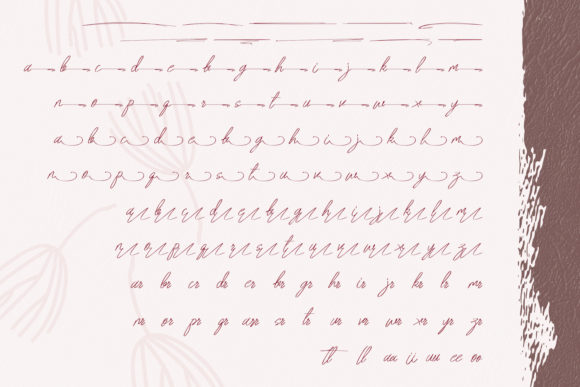 a b c d e f g h i j k l m
n o p q r s t u v w x y
a b c d e f g h i j k l m
n o p q r s t u v w x y z
a b c d e f g h i j k l m
n o p q r s t u v w x y z
ar br cr dr er fr gr hr ir jr kr lr mr
nr or pr qr sr tr ur vr wr xr yr zr
tt ll aa ii uu ee oo